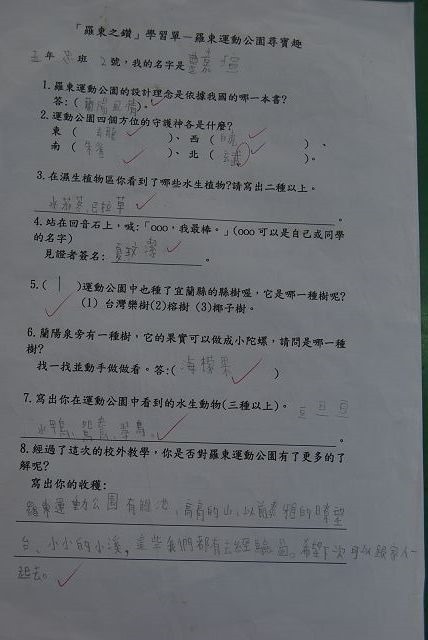 「羅東之鑽」學習單－羅東運動公園尋寶趣
五年忠班2號，我的名字是
1.羅東運動公園的設計理念是依據我國的哪一本書?
答:( )。
2.運動公園四個方位的守護神各是什麼?
東( 青龍 )、西( 白虎 )、
南( 朱雀 )、北( 玄武 )。
3.在濕生植物區你看到了哪些水生植物?請寫出二種以上。
巴拉草。
4.站在回音石上，喊:「ooo，我最棒。」(ooo可以是自己或同學
的名字)
見證者簽名: 潔。
5.( 1 )運動公園中也種了宜蘭縣的縣樹喔，它是哪一種樹呢?
(1) 台灣欒樹(2)榕樹 (3)椰子樹。
6.蘭陽泉旁有一種樹，它的果實可以做成小陀螺，請問是哪一種
樹?
找一找並動手做做看。答:( 海檬果 )
7.寫出你在運動公園中看到的水生動物(三種以上)。
水鴨、鴛鴦、。
8.經過了這次的校外教學，你是否對羅東運動公園有了更多的了
解呢?
寫出你的收穫:
羅東運動公園有 、高高的山、以前 的瞭望
台、小小的小溪，這些我們都有去經驗過。希望下次可以跟家人一
起去。